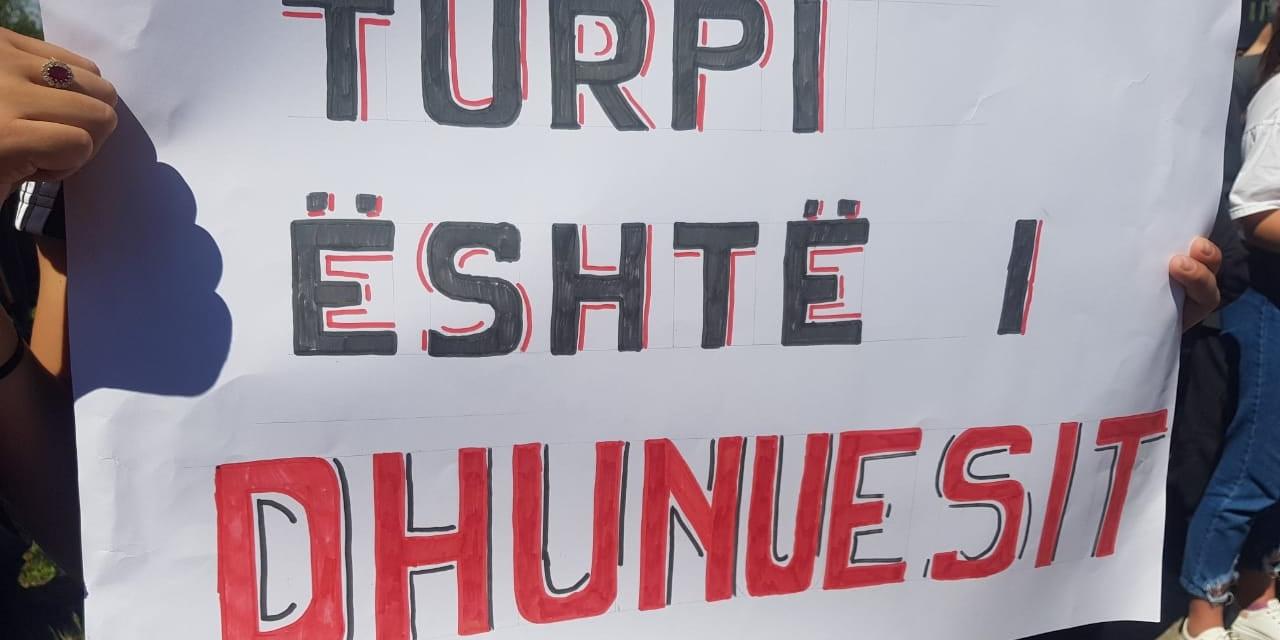 TURPI
ËSHTË I
DHUNUESIT